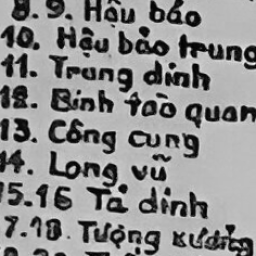 8.9. Hậu bảo
10. Hậu bảo trung
11. Trung đình
12. Binh tào quan
13. Công cung
14. Long vũ
15.16 Tả đình
17.18. Tượng xưởng